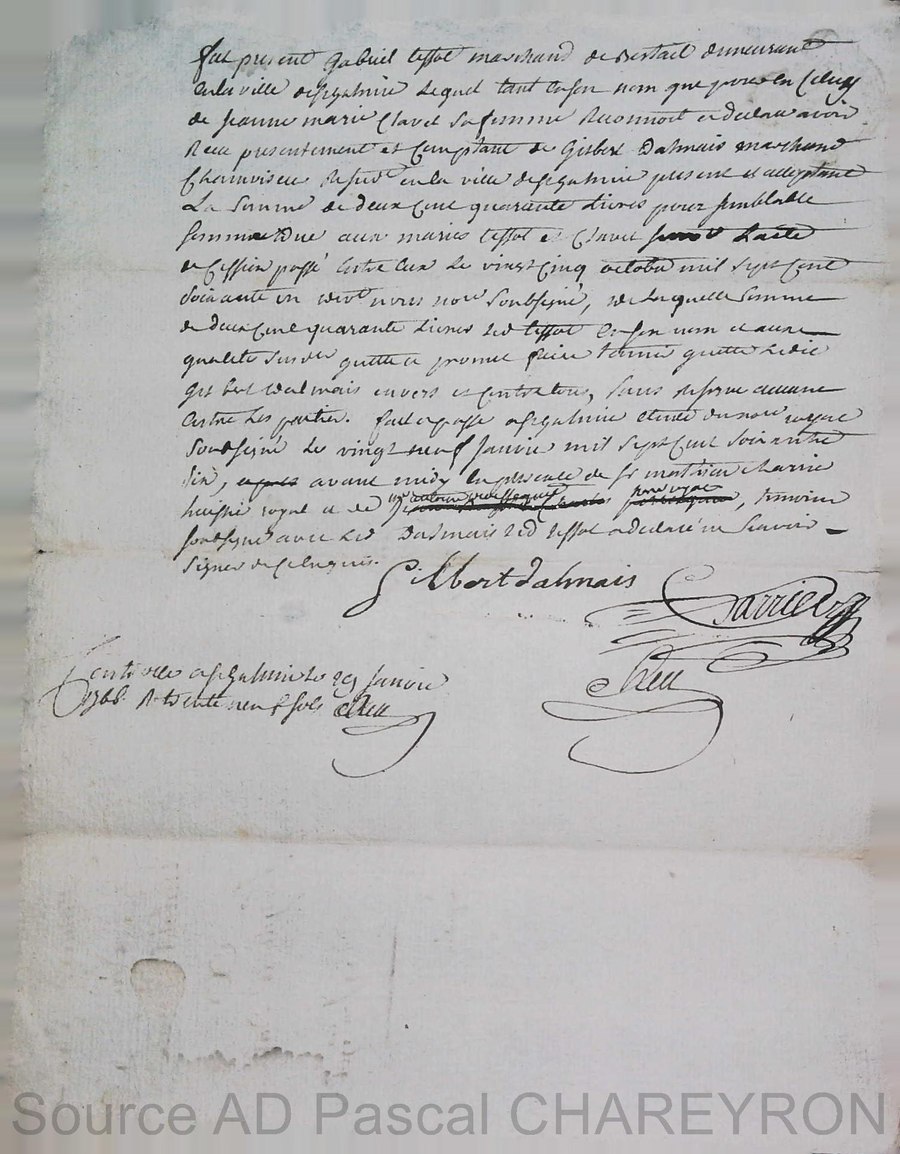 fut present Gabriel teffot marchand de bestail demeurant
en la ville de st galmier lequel tant en son nom que pour en celuy
de Jeanne marie Clavel sa femme Reconnoit et declare avoir
Receu presentement et comptant de Gisbert Dalmais marchand
Chamoiseu Resid.t en la ville de st galmier present et acceptant
La Somme de deux cent quarante Livres pour semblable
somme due aux maries teffot et Clavel Lacte
de Cession passé entre eux Le vingt cinq octobre mil sept cent
soixante un nore Soubsigné, de Laquelle Somme
de deux cent quarante Livres led teffot en son nom et
qualité quitte et promet faire tenir quitte Ledit
Gisbert dalmais envers et contre tous, sans reserve aucune
entre les parties. fait et passé a st galmier etude du nore royal
Soubsigné Le vingt neuf Janvier mil sept cent soixante
six, avant midy en presence de sr mathieu Charrie
huissier royal et de nore royal, temoins
soubsignés avec led Dalmais led teffot a declaré ne scavoir
signer de ce enquis.
Gilbert dalmais
Carrie
Controllé a st galmier le 29 Janvier
1766 R. trente neuf sols
Source AD Pascal CHAREYRON